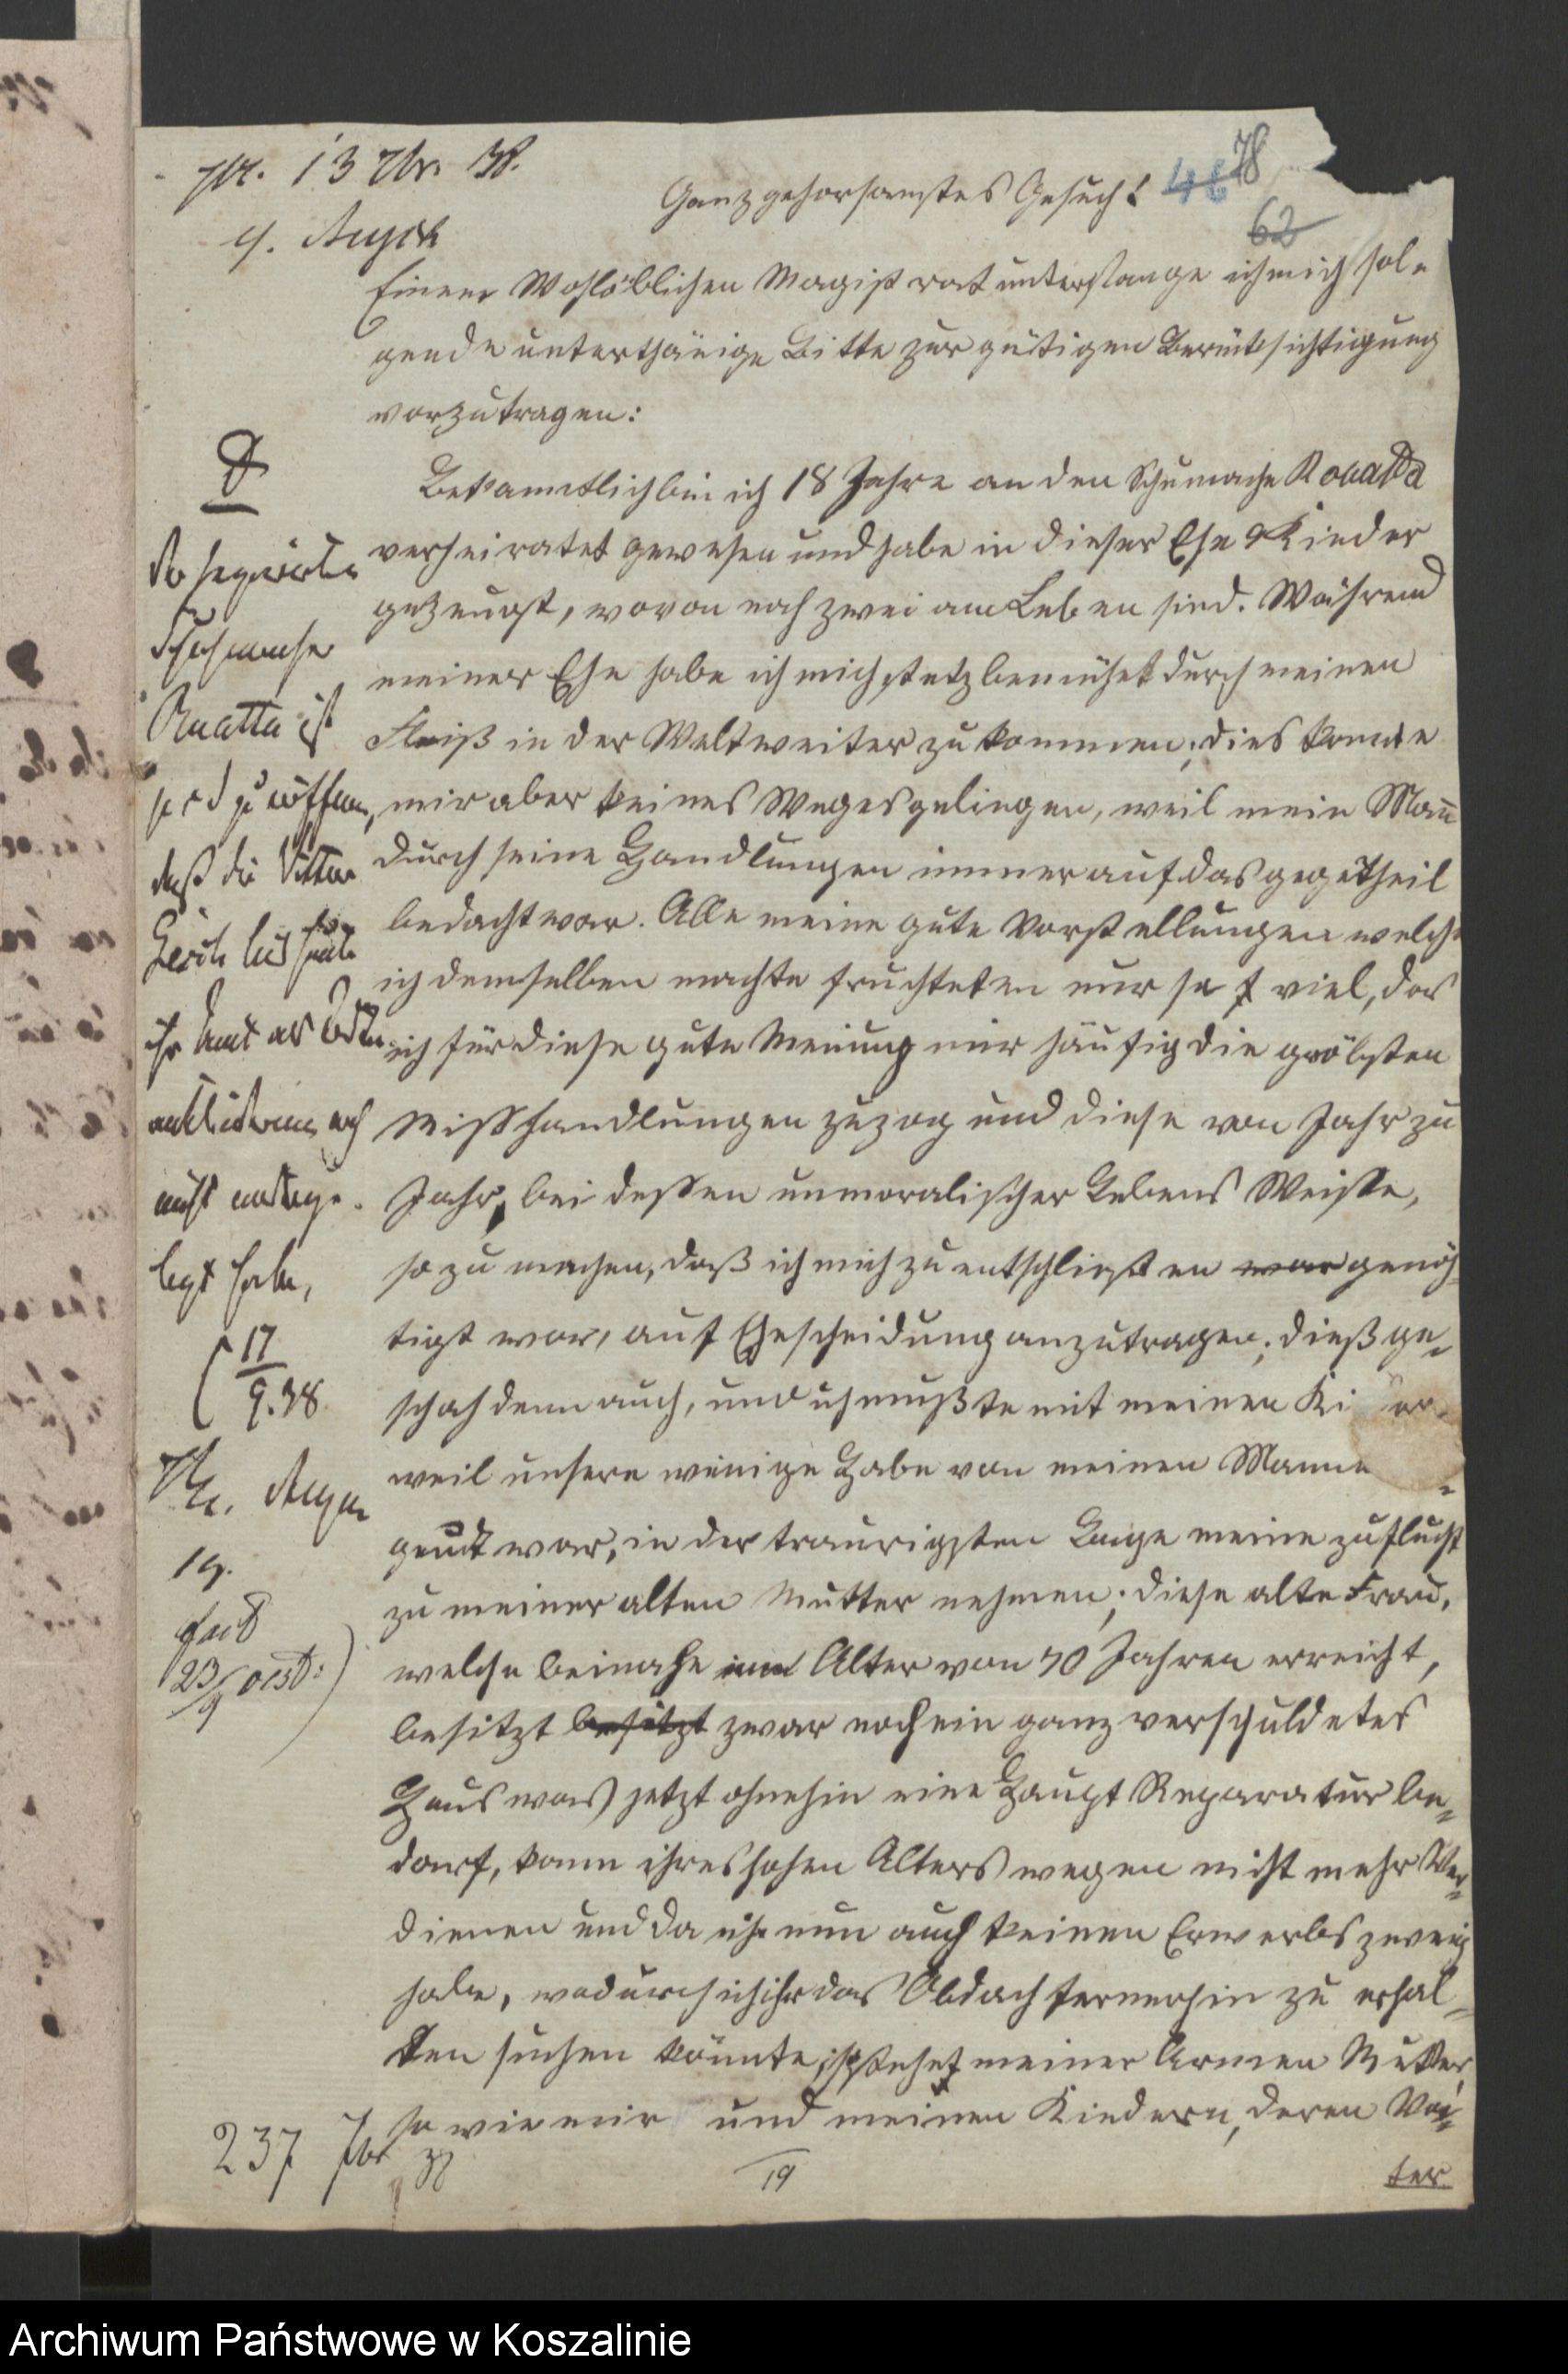 13 7br. 38.
Ganz gehorsamstes Gesuch!
46
78
62
Einem Wohllöblichen Magistrat unterfange ich mich fol-
gende unterthänige Bitte zur gütigen Berücksichtigung
vorzutragen:
Bekanntlich bin ich 18 Jahre an den Schumacher
verheiratet gewesen und habe in dieser Ehe 9 Kinder
gezeugt, wovon noch zwei am Leben sind. Während
meiner Ehe habe ich mich stetz bemühet durch meinen
Fleiß in der Welt weiter zu kommen; dies konnte
mir aber keines Weges gelingen, weil mein Mañ
durch seine Handlungen immer auf das gegetheil
bedacht war. Alle meine gute Vorstellungen welche
ich demselben machte fruchteten nur so viel, das
ich für diese gute Meinung mir häufig die gröbsten
Misshandlungen zuzog und diese von Jahr zu
Jahr, bei dessen unmoralischer Lebens Weisse,
so zu machen, daß ich mich zu entschließen war genöh
tigt war, auf Ehescheidung anzutragen; dieß ge-
schah denn auch, und ich mußte mit meinen Ki
weil unsere wenige Habe von meinen Manne
war, in der traurigsten Lage meine zuflucht
zu meiner alten Mutter nehmen; diese alte Frau,
welche beinahe Alter von 70 Jahren erreicht,
besitzt besitzt zwar noch ein ganz verschuldetes
Haus was jetzt ohnehin eine Haupt Reparatur be-
darf, kann ihres hohen Alters wegen nicht mehr Ver-
dienen und da ich nun auch keinen Erwerbszweig
habe, wodurch ich ihr das Obdach fernerhin zu erhal-
ten suchen könnte, meiner Armen Mutter
so wie mir und meinen Kindern, deren Va-
ter
Schuhmacher
Ruatta ist
zu eröffnen,
daß die Bitten
nicht
legt habe,
17
9. 38
23/9
237
19
Archiwum Państwowe w Koszalinie